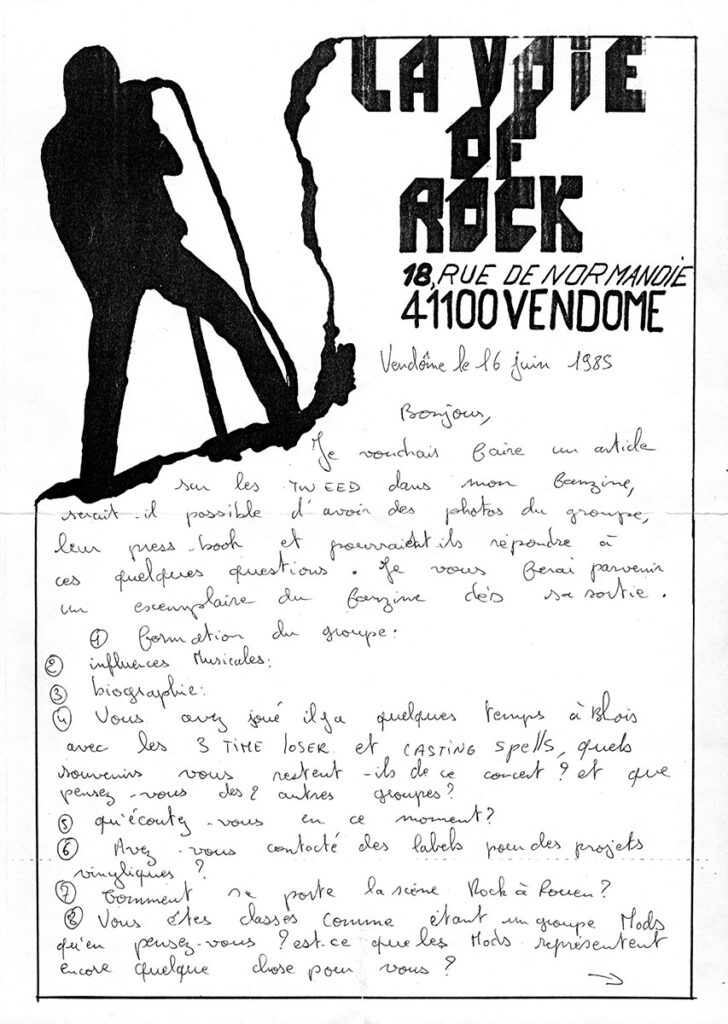 LA VOIE
DE
ROCK
18, RUE DE NORMANDIE
41100 VENDOME
Vendôme le 16 juin 1985
Bonjour,
Je voudrais faire un article
sur les TWEED dans mon fanzine,
serait-il possible d'avoir des photos du groupe,
leur press-book et pourraient ils répondre à
ces quelques questions. Je vous ferai parvenir
un exemplaire du fanzine dès sa sortie.
① formation du groupe:
② influences Musicales:
③ biographie:
④ Vous avez joué il y a quelques temps à Blois
avec les 3 TIME loser et CASTING spells, quels
souvenirs vous restent-ils de ce concert? et que
pensez-vous des 2 autres groupes?
⑤ qu'écoutez-vous en ce moment?
⑥ Avez-vous contacté des labels pour des projets
vinyliques?
⑦ Comment se porte la scène Rock à Rouen?
⑧ Vous êtes classés comme étant un groupe Mods
qu'en pensez-vous? est-ce que les Mods représentent
encore quelque chose pour vous?
→